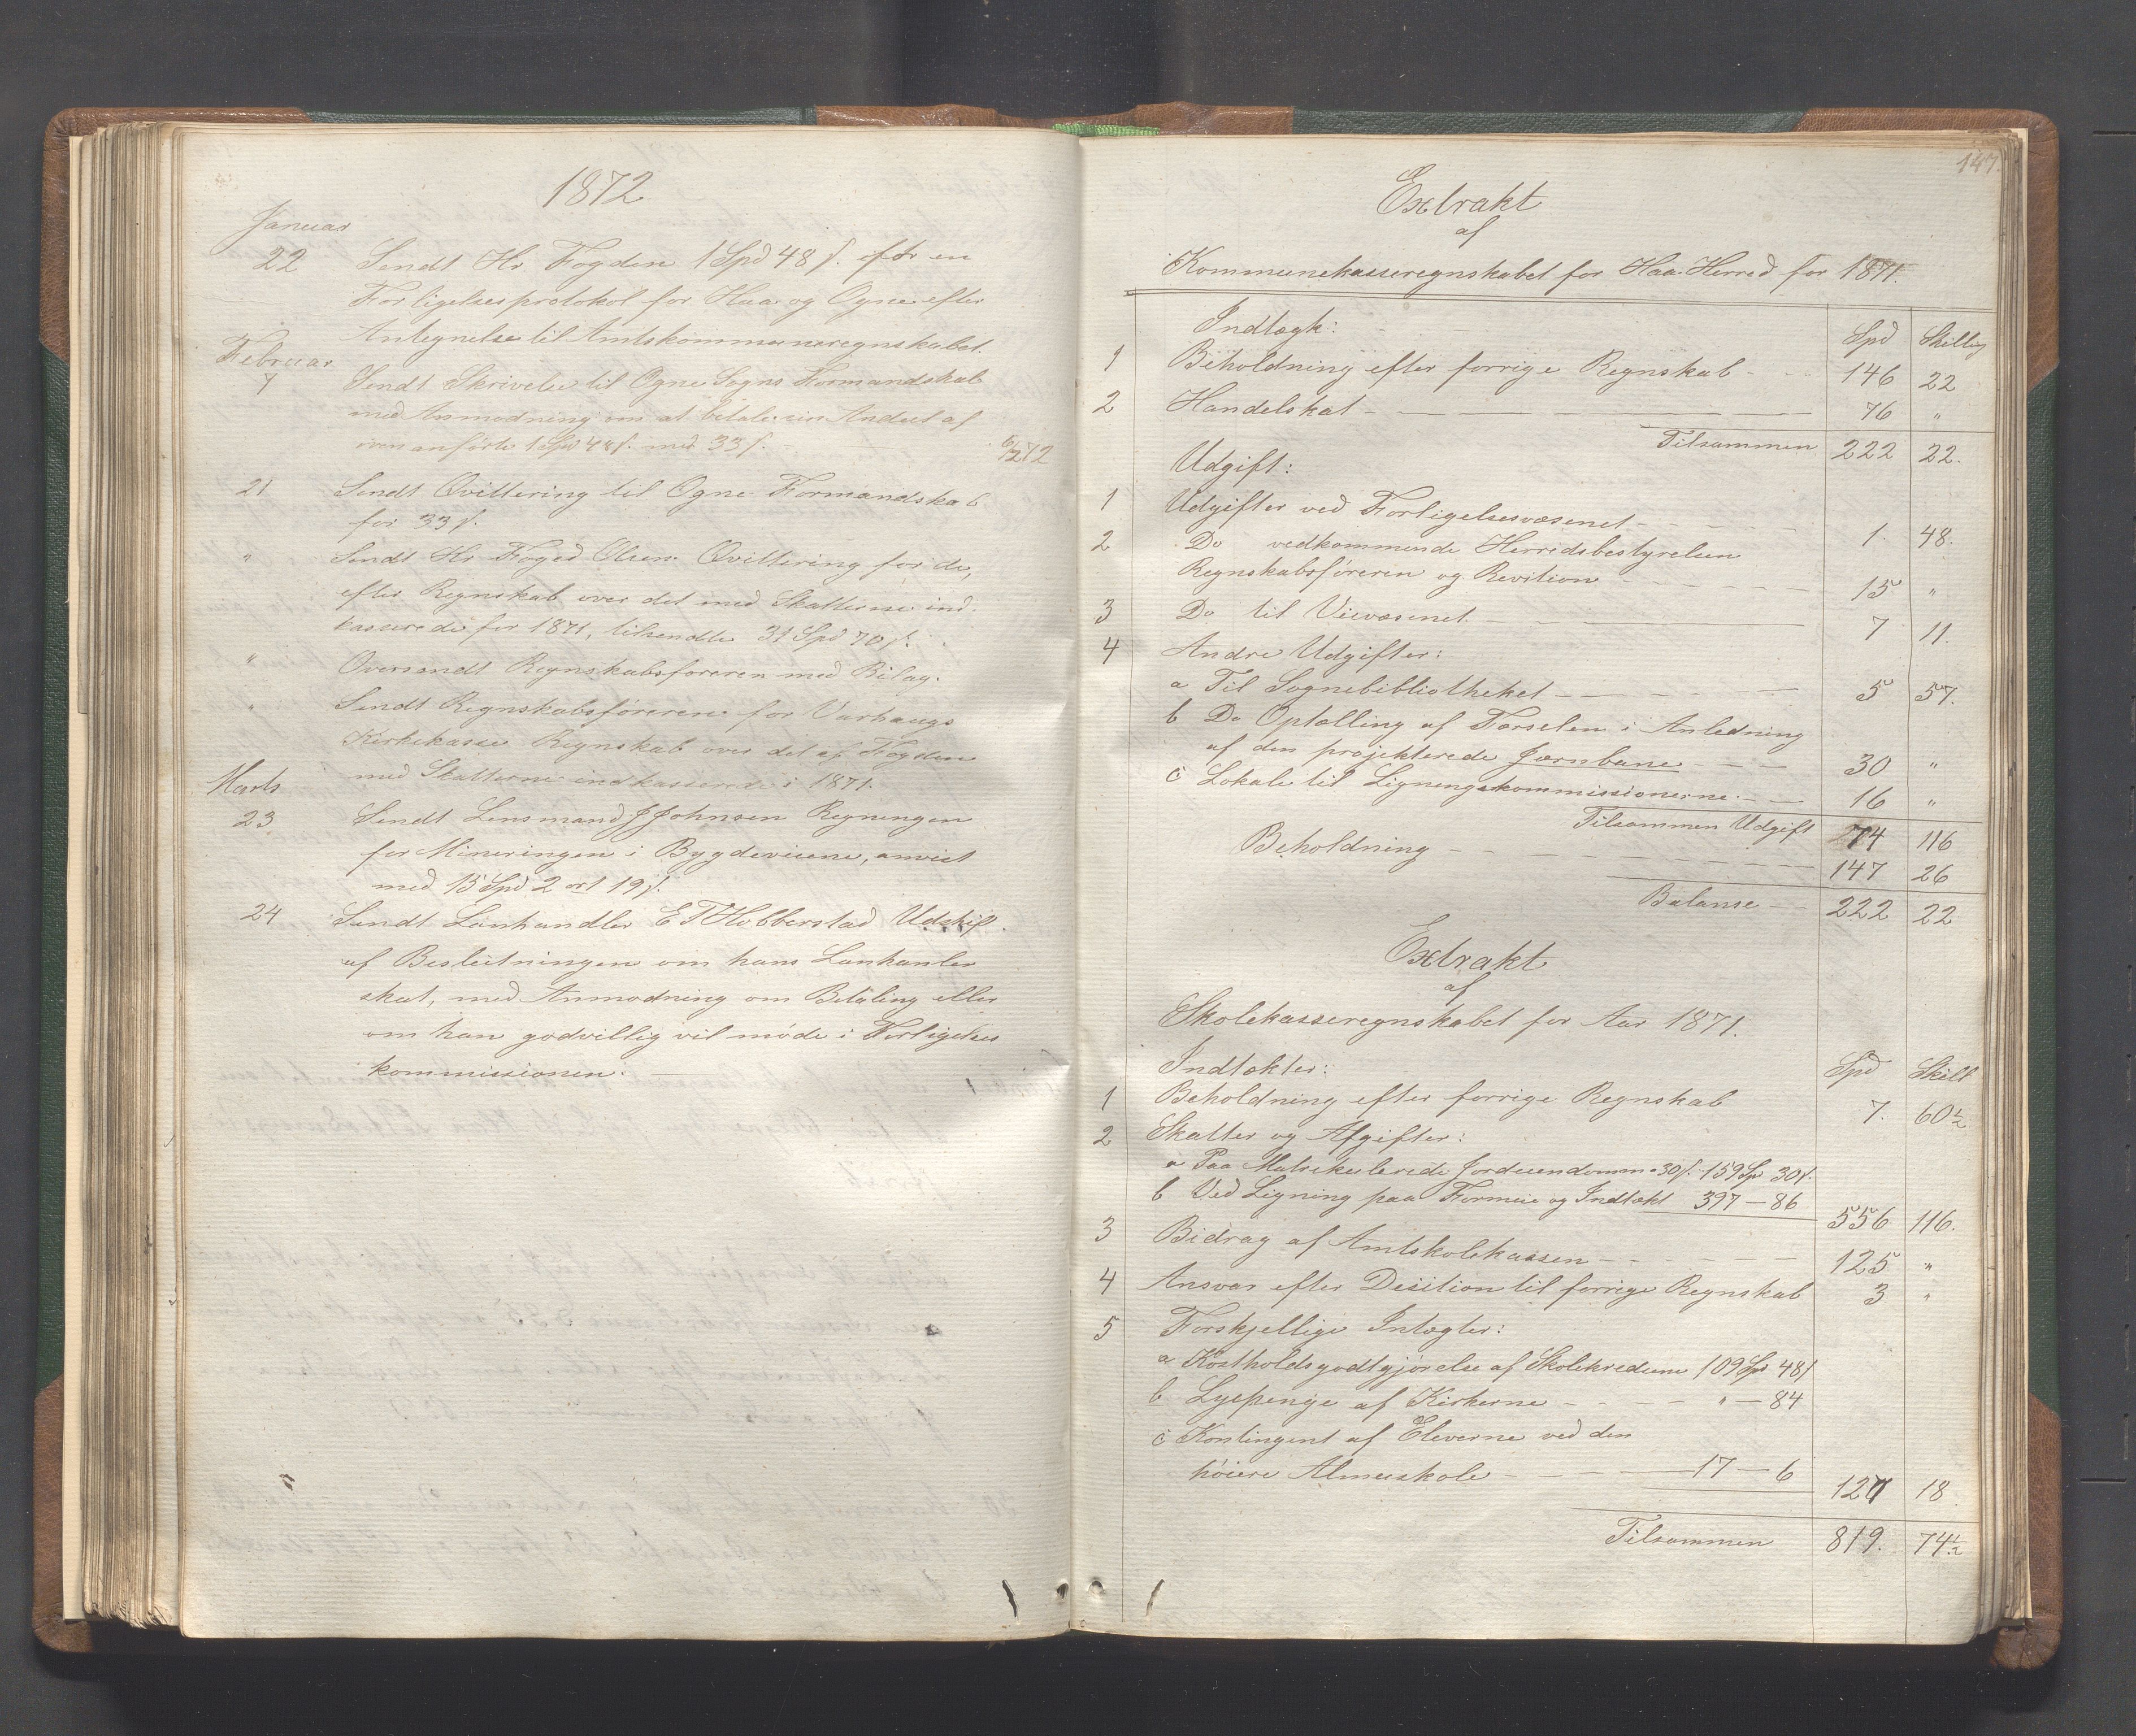 1872
Januar
22 Sendt Hr Fogden 1 Spd 48 s. for en
Forligelsesprotokol for Haa og Ogne efter
Antegnelse til Amtskommuneregnskabet.
Februar
7 Sendt Skrivelse til Ogne Sogns Formandskab
med Anmodning om at betale sin Andeel af
ovenanførte 1 Spd 48 s. med 33 s. –
21 Sendt Qvittering til Ogne Formandskab
for 33 s.
" Sendt Hr Foged Olsen Qvittering for de,
efter Regnskab over det med Skatterne ind-
kasserede for 1871, tilsendte 31 Spd 70 s.
" Oversendt Regnskabsføreren med Bilag.
" Sendt Regnskabsføreren for Varhaugs
Kirkekasse Regnskab over det af Fogden
med Skatterne indkasserede i 1871.
Marts
23 Sendt Lensmand J Johnsen Regningen
for Mineringen i Bygdeveiene, anvist
med 15 Spd 2 ort 19 s.
24 Sendt Lanhandler E T Hobberstad Udskift
af Besleitningen om hans Lanhanler
skat, med Anmodning om Betaling eller
om han godvillig vil møde i Forligelses
kommissionen. –
147.
Extrakt
af
Kommunekasseregnskabet for Haa Herred for 1871.
Indtægt: Spd Skilling
1 Beholdning efter forrige Regnskab - - 146 22
2 Handelskat - — — — 76 "
Tilsammen 222 22.
Udgift:
1 Udgifter ved Forligelsesvæsenet - - - - 1. 48.
2 Do vedkommende Herredsbestyrelsen
Regnskabsføreren og Revition - - - - 15 "
3 Do til Veivæsenet - — — 7 11.
4 Andre Udgifter:
a Til Sognebibliotheket - — - - — 5 57.
b Do Optælling af Færselen i Anledning
af den projekterede Jærnbane - - — 30 "
c Lokale til Ligningskommissionerne - — 16 "
Tilsammen Udgift 74 116
Beholdning - - - - - - 147 26
Balanse - - 222 22
Extrakt
af
Skolekasseregnskabet for Aar 1871.
Indtækter: Spd Skill
1 Beholdning efter forrige Regnskab 7. 60½
2 Skatter og Afgifter:
a Paa Matrikulerede Jordeiendomme a 30 s. 159 Sp 30 s.
b Ved Ligning paa Formue og Indtækt 397 — 86
556 116.
3 Bidrag af Amtskolekassen - - - — — 125 "
4 Ansvar efter Desition til forrige Regnskab 3 "
5 Forskjellige Intægter:
a Kostholdsgodtgjørelse af Skolekredsene 109 Spd 48 s
b Lyspenge af Kirkerne - - - - " — 84
c Kontingent af Eleverne ved den
høiere Almueskole - - — — 17 — 6
127 18
Tilsammen 819. 74½